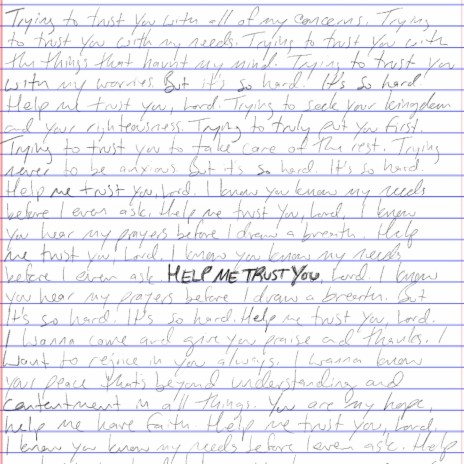 Trying to trust you with all of my concerns. Trying
to trust you with my needs. Trying to trust you with
the things that haunt my mind. Trying to trust you
with my worries. But it's so hard. It's so hard
Help me trust you, Lord. Trying to seek your kingdom
and your righteousness. Trying to truly put you first.
Trying to trust you to take care of the rest. Trying
never to be anxious. But it's so hard. It's so hard
Help me trust you, Lord. I know you know my needs
before I even ask. Help me trust you, Lord, I know
you hear my prayers before I draw a breath. Help
me trust you, Lord. I know you know my needs
before I even ask HELP ME TRUST YOU, Lord. I know
you hear my prayers before I draw a breath. But
It's so hard. It's so hard. Help me trust you, Lord.
I wanna come and give you praise and thanks. I
want to rejoice in you always. I wanna know
your peace that's beyond understanding and
contentment in all things. You are my hope,
help me have faith. Help me trust you, Lord.
I know you know my needs before I even ask. Help